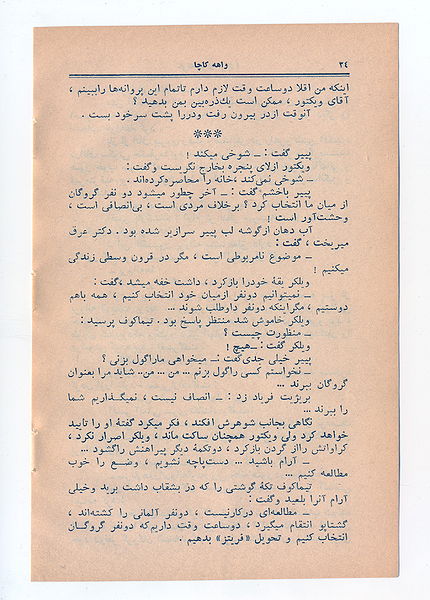 ۳۴ واهه کاچا
اینکه من اقلا دوساعت وقت لازم دارم تاتمام این پروانه‌ها راببینم ،
آقای ویکتور ، ممکن است یك‌ذره‌بین بمن بدهید ؟
آنوقت ازدر بیرون رفت ودررا پشت سرخود بست .
***
پییر گفت : ـ شوخی میکند !
ویکتور ازلای پنجره بخارج نگریست وگفت :
ـ شوخی نمی‌کند ،خانه را محاصره‌کرده‌اند .
پییر باخشم گفت : ـ آخر چطور میشود دو نفر گروگان
از میان ما انتخاب کرد ؟ برخلاف مردی است ، بی‌انصافی است ،
وحشت‌آور است !
آب دهان ازگوشه لب پییر سرازیر شده بود . دکتر عرق
میریخت ، گفت :
ـ موضوع نامربوطی است ، مگر در قرون وسطی زندگی
میکنیم !
ویلکر یقهٔ خودرا بازکرد ، داشت خفه میشد ،گفت :
ـ نمیتوانیم دونفر ازمیان خود انتخاب کنیم ، همه باهم
دوستیم ، مگراینکه دونفر داوطلب شوند ...
ویلکر خاموش شد منتظر پاسخ بود . تیماکوف پرسید :
ـ منظورت چیست ؟
ویلکر گفت : ـ هیچ !
پییر خیلی جدی‌گفت : ـ میخواهی ماراگول بزنی ؟
ـ نخواستم کسی راگول بزنم ... من ... من.. شاید مرا بعنوان
گروگان ببرند ...
بریژیت فریاد زد : ـ انصاف نیست ، نمیگذاریم شما
را ببرند ...
نگاهی بجانب شوهرش افکند ، فکر میکرد گفتهٔ او را تایید
خواهد کرد ولی ویکتور همچنان ساکت ماند ، ویلکر اصرار نکرد ،
کراواتش رااز گردن بازکرد ، دوتکمهٔ دیگر پیراهنش راگشود ...
ـ آرام باشید ... دست‌پاچه نشویم ، وضع را خوب
مطالعه کنیم ...
تیماکوف تکهٔ گوشتی را که در بشقاب داشت برید وخیلی
آرام آنرا بلعید وگفت :
ـ مطالعه‌ای درکارنیست ، دونفر آلمانی را کشته‌اند ،
گشتاپو انتقام میگیرد ، دوساعت وقت داریم‌که دونفر گروگان
انتخاب کنیم و تحویل «فریتز» بدهیم .